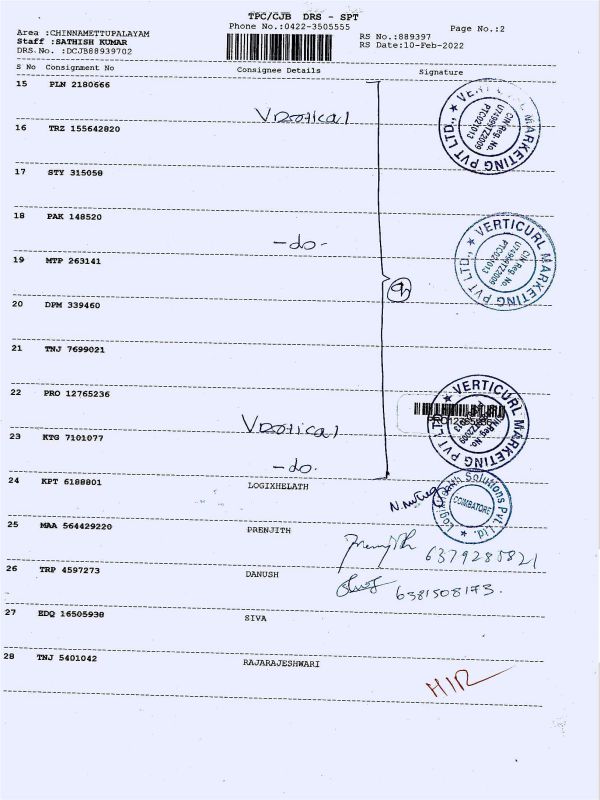 TPC/CJB DRS - SPT
Phone No.:0422-3505555
Page No.:2
Area :CHINNAMETTUPALAYAM
Staff :SATHISH KUMAR
DRS.No. :DCJB88939702
RS No.:889397
RS Date:10-Feb-2022
S No Consignment No Consignee Details Signature
15 PLN 2180666
VERTICURL MARKETING PVT LTD., ★
CIN Reg. No.
16 TRZ 155642820
17 STY 315058
18 PAK 148520
-do-
VERTICURL MARKETING PVT LTD., ★
CIN Reg. No.
19 MTP 263141
9
20 DPM 339460
21 TNJ 7699021
22 PRO 12765236
VERTICURL MARKETING PVT LTD
23 KTG 7101077
-do.
24 KPT 6188801 LOGIXHELATH
Solutions Pvt. Ltd. ★
COIMBATORE
25 MAA 564429220 PRENJITH
6379285821
26 TRP 4597273 DANUSH
6381508173.
27 EDQ 16505938 SIVA
28 TNJ 5401042 RAJARAJESHWARI